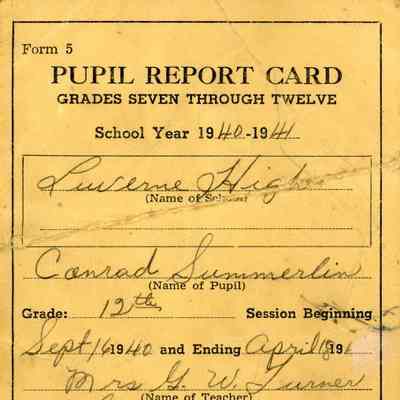 Form 5
PUPIL REPORT CARD
GRADES SEVEN THROUGH TWELVE
School Year 1940-1941
Luverne High
(Name of School)
Conrad Summerlin
(Name of Pupil)
Grade: 12th Session Beginning
Sept 16 1940 and Ending April 18 191
Mrs G. W. Turner
(Name of Teacher)